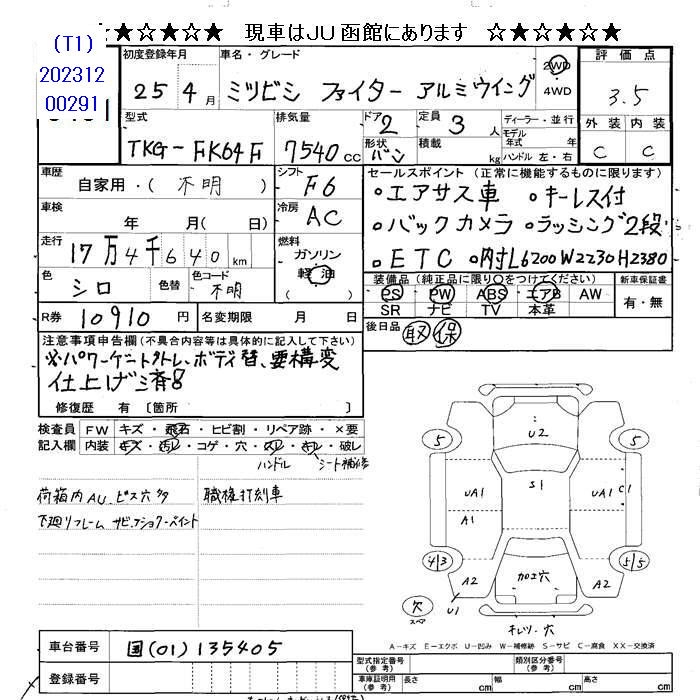 ☆★☆★☆★☆ 現車はJU函館にあります ☆★☆★☆★☆
(T1)
202312
00291
初度登録年月
25 4月
車名・グレード
ミツビシ ファイター アルミウイング
2WD
4WD
評価点
3.5
外装 内装
C C
型式
TKG-FK64F
排気量
7540cc
ドア 2
形状 バン
定員 3人
積載 kg
ディーラー・並行
モデル
年式 年
ハンドル 左・右
車歴
自家用・(不明)
シフト
F6
車検
年 月( 日)
冷房
AC
走行
17万4千640km
燃料
ガソリン
軽油
( )
色
シロ
色替
色コード
不明
R券 10910円
名変期限 月 日
セールスポイント(正常に機能するものに限ります)
○エアサス車 ○キーレス付
○バックカメラ ○ラッシング2段
○ETC ○内寸L6200W2230H2380
装備品(純正品に限り○をつけてください)
PS PW ABS エアB AW
SR ナビ TV 本革
新車保証書
有・無
後日品 取 保
注意事項申告欄(不具合内容等は具体的に記入して下さい)
※パワーゲート外トレ、ボディ替、要構変
仕上げミ済8
修復歴 有 [箇所 ]
検査員 FW キズ・飛石・ヒビ割・リペア跡・×要
記入欄 内装 キズ・汚レ・コゲ・穴・スレ・キレ・破レ
ハンドル シート補修
荷箱内AU、ビス穴多
職権打刻車
下廻リフレームサビ、ショクーペイント
U2
5 5
S1
UA1 UA1 C1
A1
4/3 5/5
A2 加工穴 A2
欠
スペア
U1
キレツ・穴
A-キズ E-エクボ U-凹み W-補修跡 S-サビ C-腐食 XX-交換済
車台番号 国(01)135405
登録番号
型式指定番号
(参考)
類別区分番号
(参考)
車庫証明用
(参考)
長さ cm 幅 cm 高さ cm